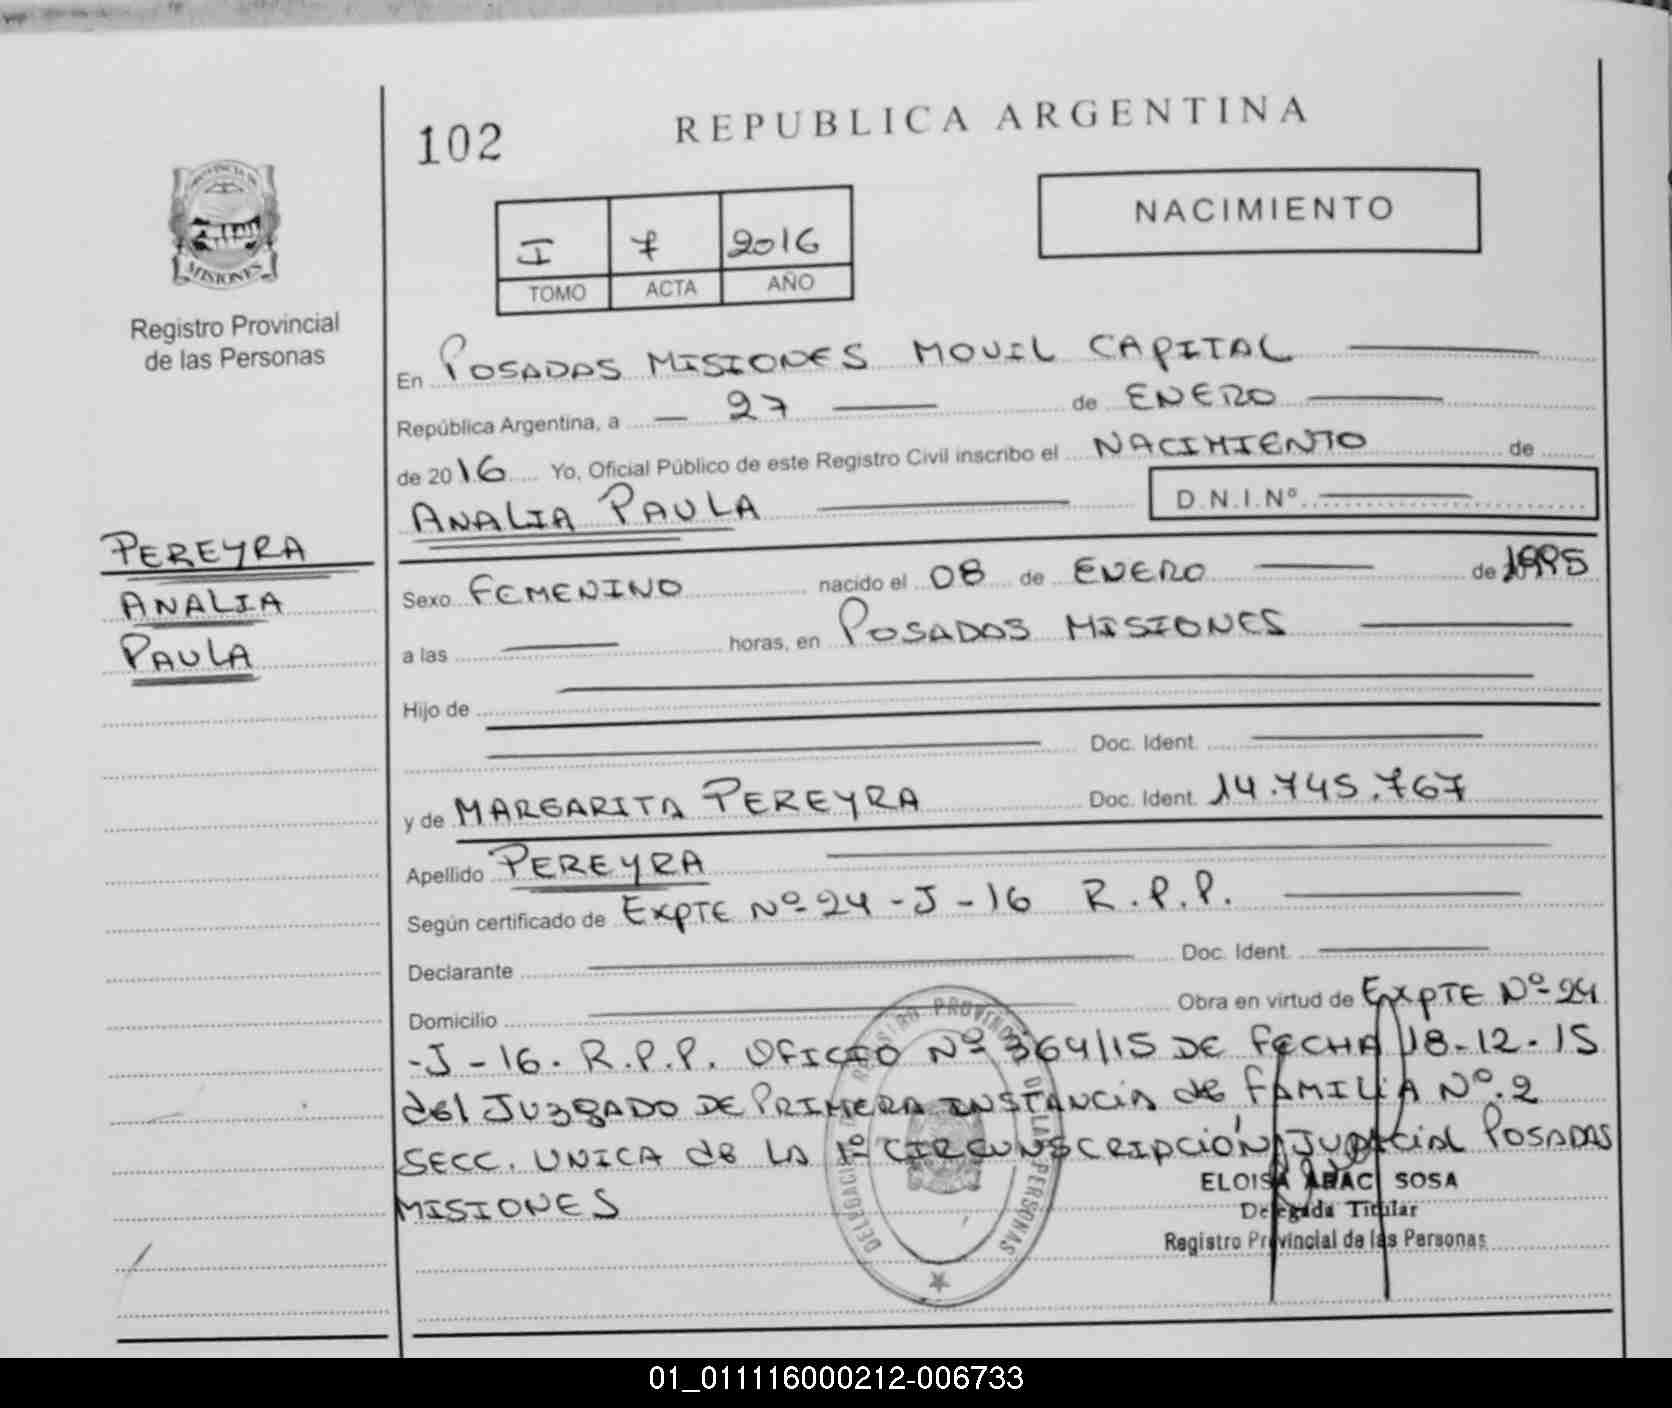 102
REPUBLICA ARGENTINA
PROVINCIA DE
MISIONES
Registro Provincial
de las Personas
I 7 2016
TOMO ACTA AÑO
NACIMIENTO
En POSADAS MISIONES MOVIL CAPITAL
República Argentina, a 27 de ENERO
de 2016 Yo, Oficial Público de este Registro Civil inscribo el NACIMIENTO de
ANALIA PAULA D.N.I.Nº
PEREYRA
ANALIA
PAULA
Sexo FEMENINO nacido el 08 de ENERO de 1995
a las horas, en POSADAS MISIONES
Hijo de
Doc. Ident.
y de MARGARITA PEREYRA Doc. Ident. 14.745.767
Apellido PEREYRA
Según certificado de EXPTE Nº 24-J-16 R.P.P.
Declarante Doc. Ident.
Domicilio Obra en virtud de EXPTE Nº 24
-J-16. R.P.P. OFICIO Nº 364/15 DE FECHA 18-12-15
del JUZGADO DE PRIMERA INSTANCIA de FAMILIA Nº.2
SECC. UNICA de LA 1º CIRCUNSCRIPCIÓN JUDICIAL POSADAS
MISIONES
DELEGACION REGISTRO PROVINCIAL DE LAS PERSONAS
ELOISA SOSA
Delegada Titular
Registro Provincial de las Personas
01_011116000212-006733